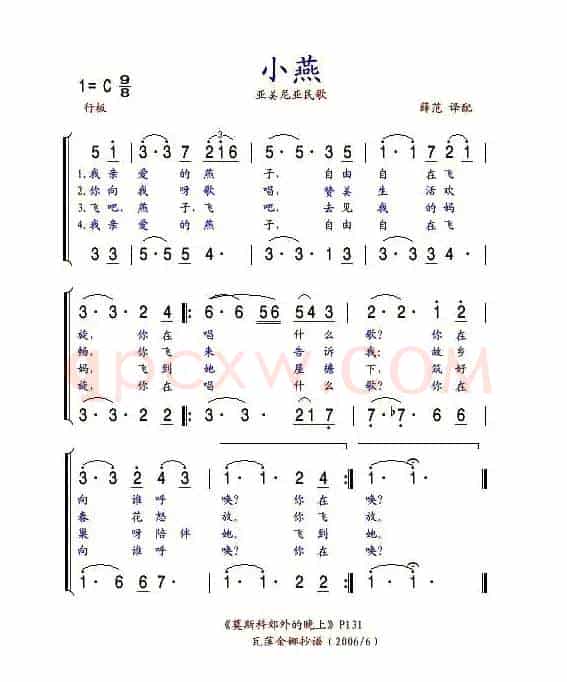 小燕
1=C 9/8
亚美尼亚民歌
行板
薛范 译配
5 1 3·3 7 216 5·5·3 5 1·1·7 1
1.我亲爱的燕子,自由自在飞
2.你向我呀歌唱,赞美生活欢
3.飞吧,燕子,飞吧,去见我的妈
4.我亲爱的燕子,自由自在飞
3 3 5·5 5 3·3·1 3 3·3 3 4·
3·3·2 4 6·6 56 543 2·2·1 2
旋,你在唱什么歌?你在
畅,你飞来告诉我:故乡
妈,飞到她屋檐下,筑好
旋,你在唱什么歌?你在
3·3·2 4 3·3· 217 7·♭7·6 6
qpcxw.COM
3·3·2 4 3 1·1·2 4 1·1·
向谁呼唤?你在唤?
春花怒放。你飞放。
巢呀陪伴她,飞到她。
向谁呼唤?你在唤?
1·6 6 7 1·1·2 4 1·1·
《莫斯科郊外的晚上》P131
瓦莲金娜抄谱(2006/6)